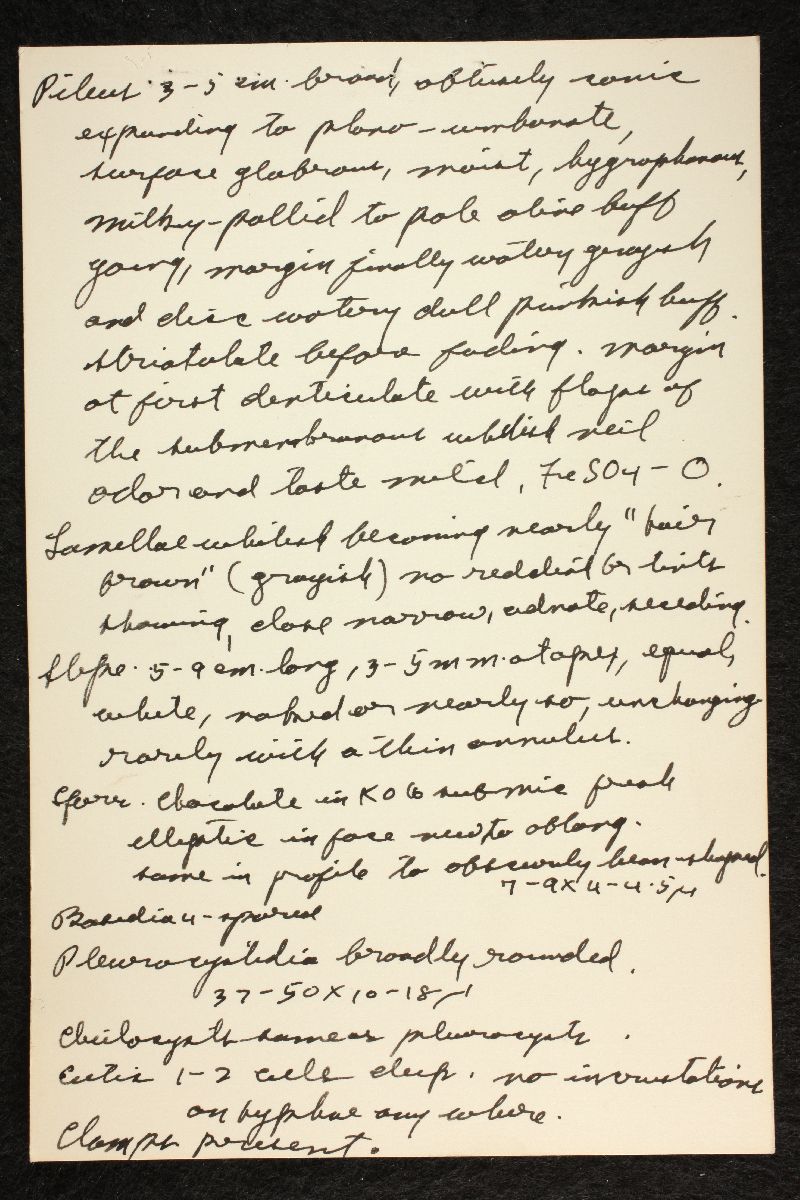 Pileus 3-5 cm. broad, obtusely conic
expanding to plano-umbonate,
surface glabrous, moist, hygrophanous,
milky-pallid to pale olive buff
young, margin finally watery grayish
and disc watery dull pinkish buff.
striatulate before fading. margin
at first denticulate with flaps of
the submembranous whitish veil
odor and taste mild, FeSO4 - O.
Lamellae whitish becoming nearly "hair
brown" (grayish) no reddish br tints
showing, close narrow, adnate, seceding.
Stipe. 5-9 cm. long, 3-5 mm. at apex, equal,
white, naked or nearly so, unchanging
rarely with a thin annulus.
Spores. Chocolate in KOH submic fresh
elliptic in face view to oblong.
same in profile to obscurely bean-shaped.
7-9 X 4-4.5 µ
Basidia 4-spored
Pleurocystidia broadly rounded.
37-50 X 10-18 µ
Cheilocysts same as pleurocysts.
Cutis 1-2 cells deep. no incrustations
on hyphae any where.
Clamps present.